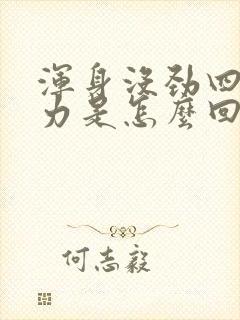 渾身沒勁四
力是怎麼回
何志毅